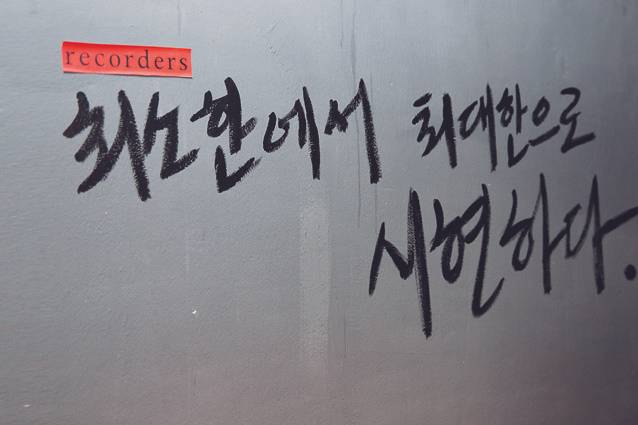 recorders
최소한에서 최대한으로
시현하다.